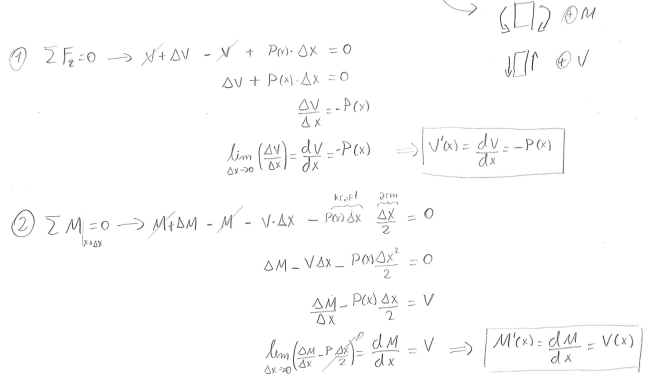 ⊕ M
⊕ V
① ΣF_z = 0 → V + ΔV - V + P(x)·Δx = 0
ΔV + P(x)·Δx = 0
ΔV/Δx = -P(x)
lim Δx→0 (ΔV/Δx) = dV/dx = -P(x) ⇒ V'(x) = dV/dx = -P(x)
kraft arm
② ΣM|x+Δx = 0 → M + ΔM - M - V·Δx - P(x)Δx · Δx/2 = 0
ΔM - VΔx - P(x)Δx²/2 = 0
ΔM/Δx - P(x) Δx/2 = V
lim Δx→0 (ΔM/Δx - P Δx/2)⁰ = dM/dx = V ⇒ M'(x) = dM/dx = V(x)